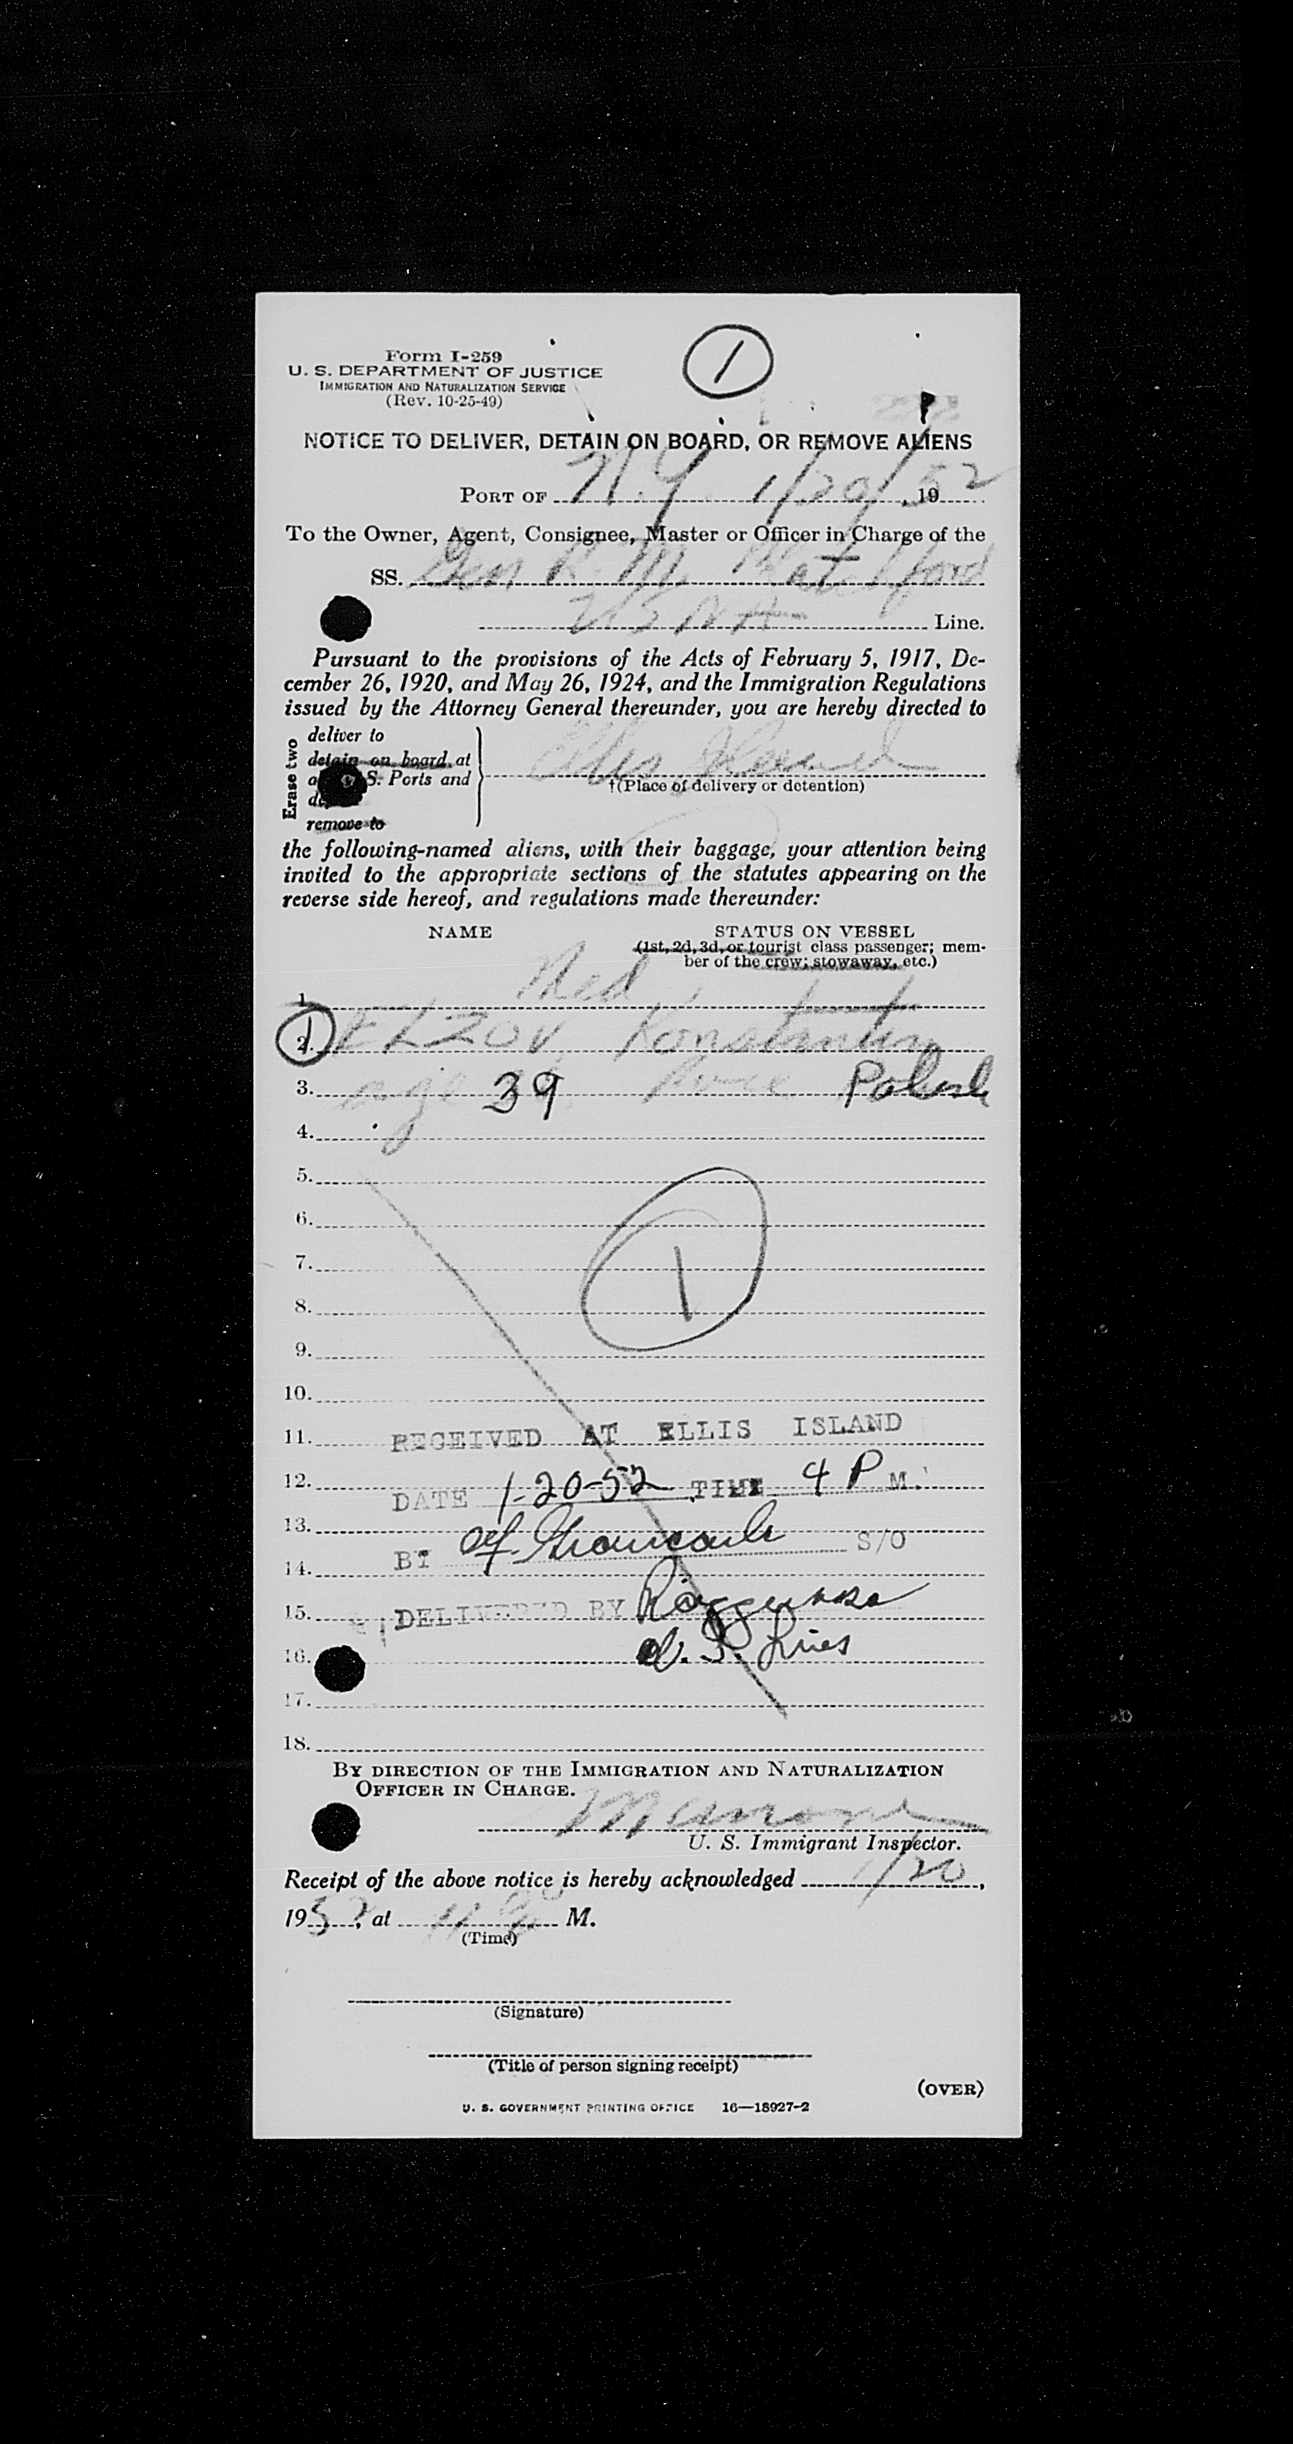 Form I-259
U. S. DEPARTMENT OF JUSTICE
IMMIGRATION AND NATURALIZATION SERVICE
(Rev. 10-25-49)
1
NOTICE TO DELIVER, DETAIN ON BOARD, OR REMOVE ALIENS
PORT OF N.Y. 1/20/, 1952
To the Owner, Agent, Consignee, Master or Officer in Charge of the
SS. Gen R. M. Blatchford
USNA Line.
Pursuant to the provisions of the Acts of February 5, 1917, De-
cember 26, 1920, and May 26, 1924, and the Immigration Regulations
issued by the Attorney General thereunder, you are hereby directed to
Erase two
deliver to
detain on board at
S. Ports and
remove to
Ellis Island
†(Place of delivery or detention)
the following-named aliens, with their baggage, your attention being
invited to the appropriate sections of the statutes appearing on the
reverse side hereof, and regulations made thereunder:
NAME STATUS ON VESSEL
(1st, 2d, 3d, or tourist class passenger; mem-
ber of the crew; stowaway, etc.)
1. Med
1 2. ELZOV, Konstantin
3. age 39 Polish
4.
5.
6.
7.
1
8.
9.
10.
11. RECEIVED AT ELLIS ISLAND
12. DATE 1-20-52 TIME 4 P M.
13.
BY S/O
14.
15. DELIVERED BY
16. U. S. Lines
17.
18.
BY DIRECTION OF THE IMMIGRATION AND NATURALIZATION
OFFICER IN CHARGE.
U. S. Immigrant Inspector.
Receipt of the above notice is hereby acknowledged 1/20,
1952, at M.
(Time)
(Signature)
(Title of person signing receipt)
(OVER)
U. S. GOVERNMENT PRINTING OFFICE 16—18927-2